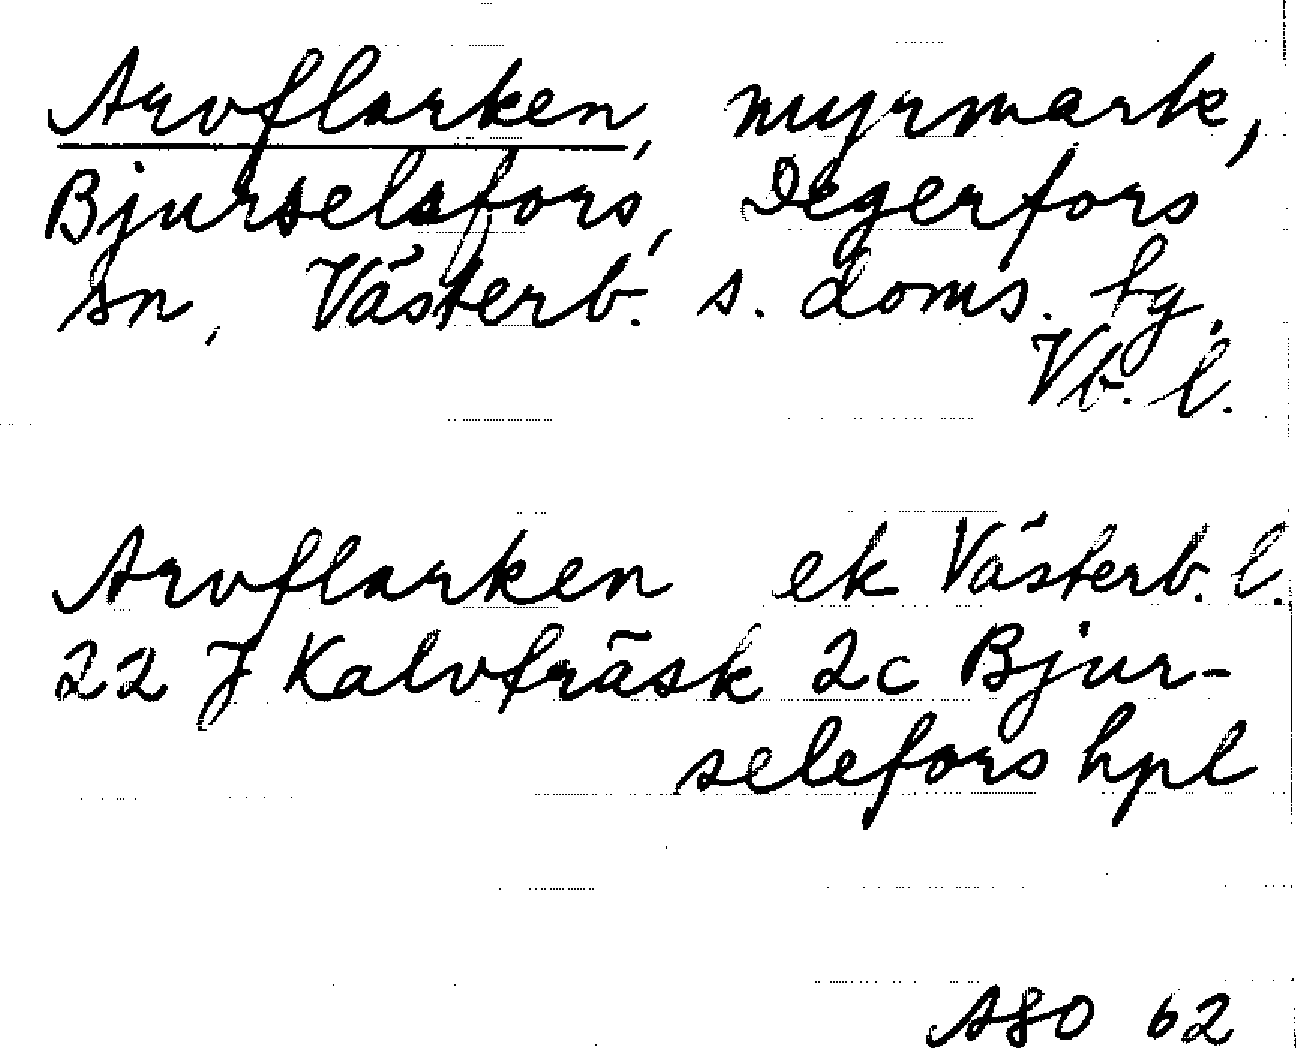 Arvflarken, myrmark,
Bjurselsfors, Degerfors
sn, Västerb. s. doms. bg,
Vb. l.
Arvflarken ek Västerb. l.
22 J Kalvfräsk 2c Bjur-
selefors hpl
ASO 62